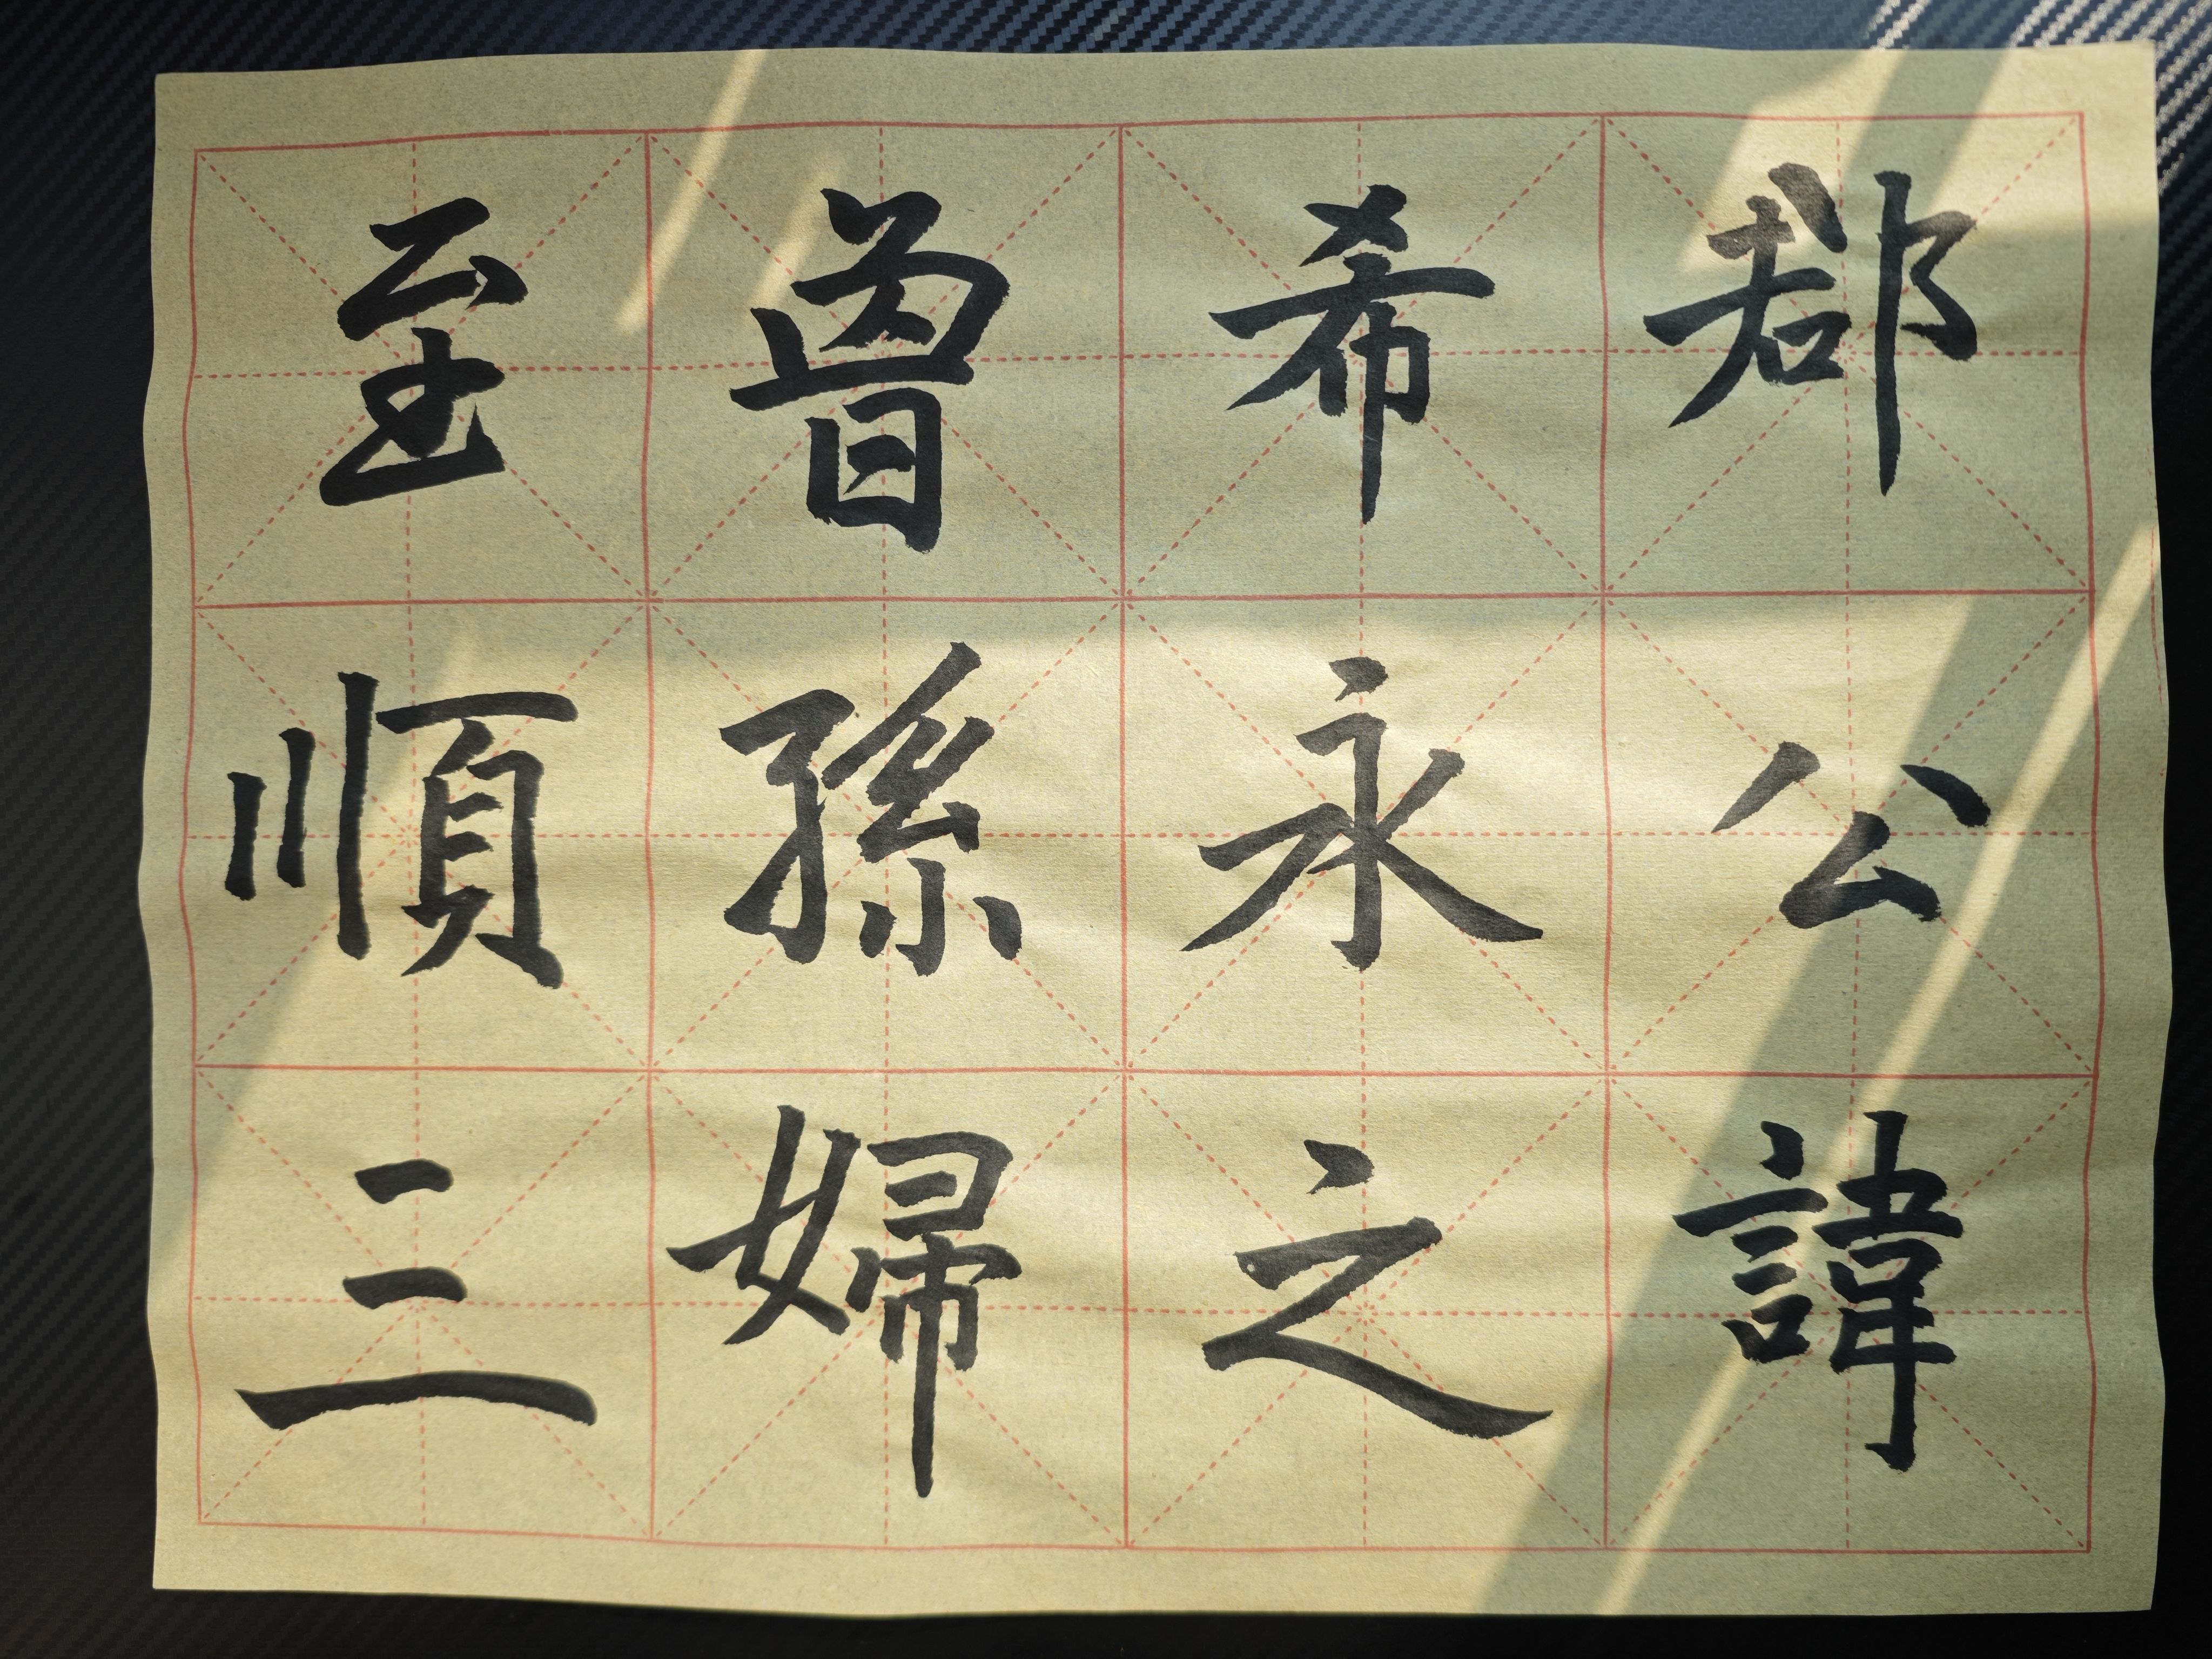 郡公諱
希永之
曾孫婦
至順三